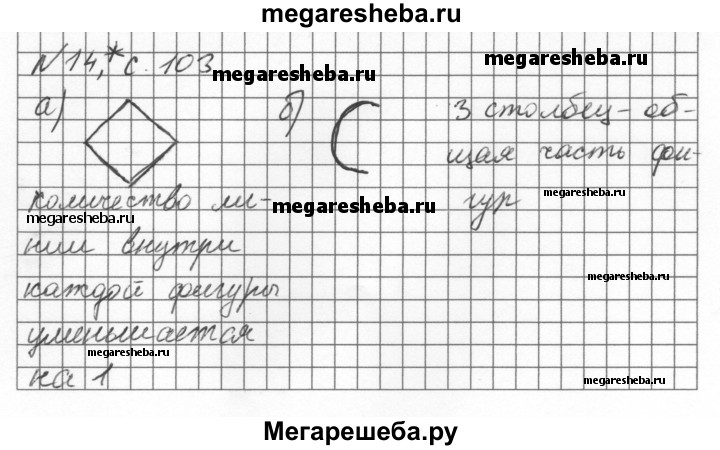 megaresheba.ru
N 14,* с. 103
megaresheba.ru
megaresheba.ru
а)
б)
3 столбец - об-
щая часть фи-
гур
количество ли-
ний внутри
каждой фигуры
уменьшается
на 1
megaresheba.ru
megaresheba.ru
megaresheba.ru
megaresheba.ru
megaresheba.ru
megaresheba.ru
Мегарешеба.ру